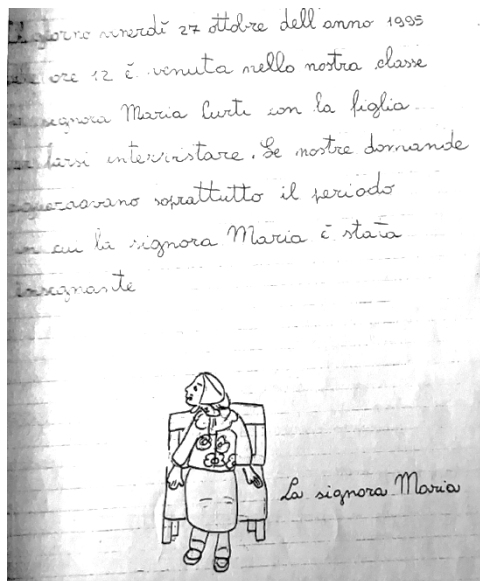 Il giorno venerdì 27 ottobre dell'anno 1995
alle ore 12 è venuta nella nostra classe
la signora Maria Curti con la figlia
per farsi intervistare. Le nostre domande
riguardavano soprattutto il periodo
in cui la signora Maria è stata
insegnante
La signora Maria